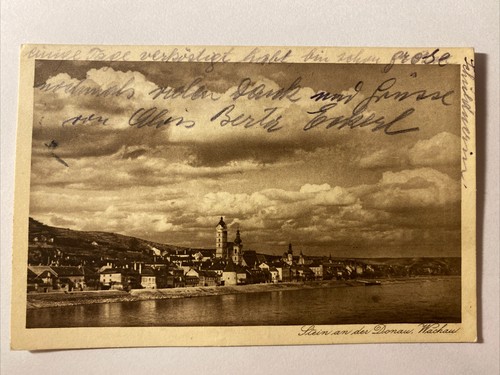 einige Tage verköstigt habt bin schon große
nochmals vielen Dank und Grüsse
von Alois Bertz
Stein an der Donau, Wachau